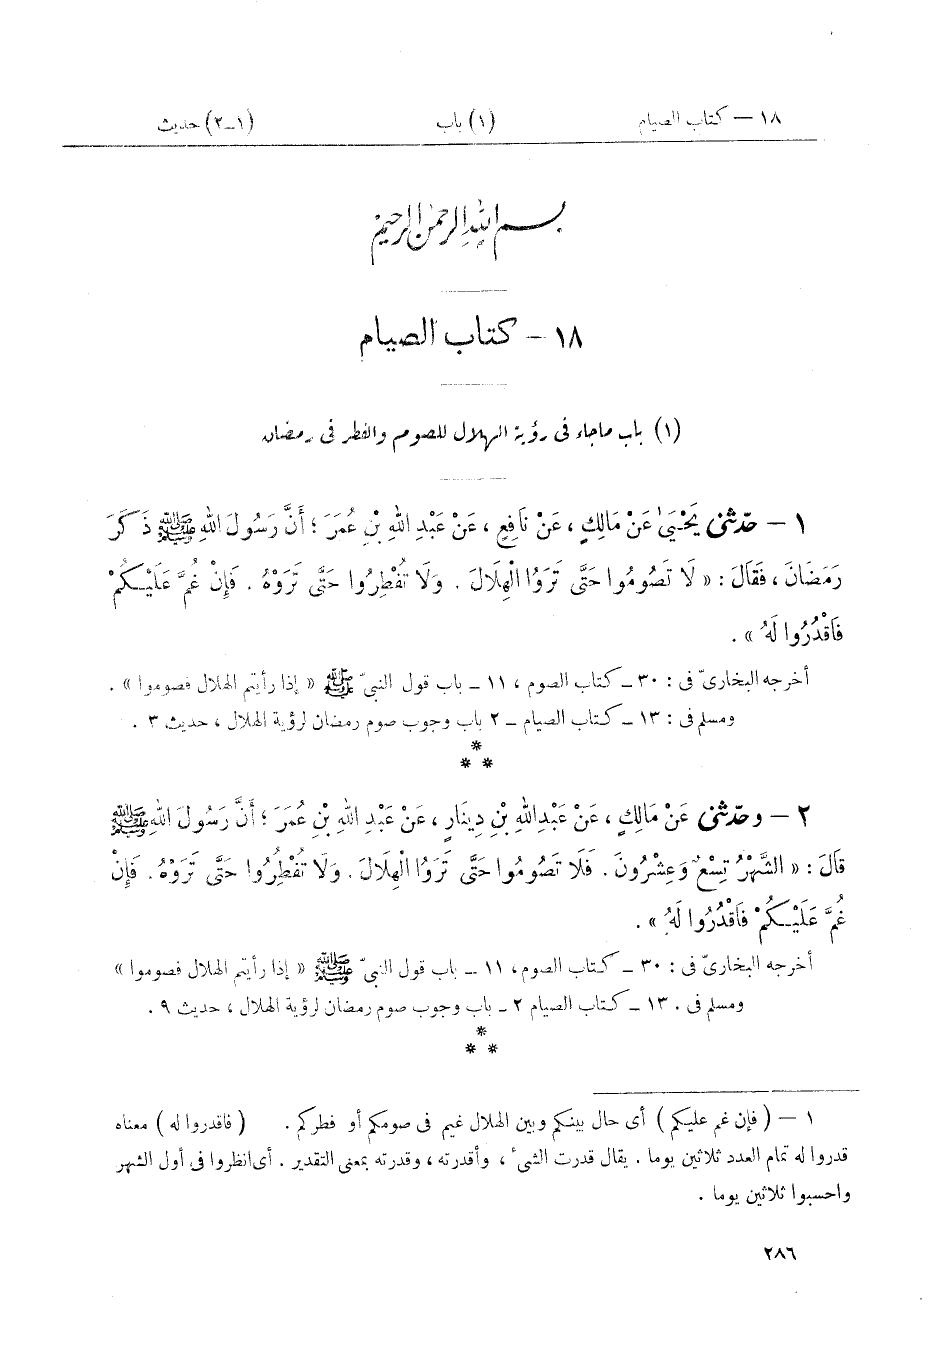 ١٨ – كتاب الصيام (١) باب (١–٢) حديث
بسم الله الرحمن الرحيم
١٨ – كتاب الصيام
(١) باب ماجاء فى رؤية الهلال للصوم والفطر فى رمضان
١ – حدّثنى يَحْيَىٰ عَنْ مَالِكٍ ، عَنْ نَافِعٍ ، عَنْ عَبْدِ اللهِ بْنِ عُمَرَ ؛ أَنَّ رَسُولَ اللهِ ﷺ ذَكَرَ
رَمَضَانَ ، فَقَالَ : « لَا تَصُومُوا حَتَّى تَرَوُا الْهِلَالَ . وَلَا تُفْطِرُوا حَتَّى تَرَوْهُ . فَإِنْ غُمَّ عَلَيْكُمْ
فَاقْدُرُوا لَهُ » .
أخرجه البخارىّ فى : ٣٠ – كتاب الصوم ، ١١ – باب قول النبىّ ﷺ « إذا رأيتم الهلال فصوموا » .
ومسلم فى : ١٣ – كتاب الصيام – ٢ باب وجوب صوم رمضان لرؤية الهلال ، حديث ٣ .
*
* *
٢ – وحدّثنى عَنْ مَالِكٍ ، عَنْ عَبْدِ اللهِ بْنِ دِينَارٍ ، عَنْ عَبْدِ اللهِ بْنِ عُمَرَ ؛ أَنَّ رَسُولَ اللهِ ﷺ
قَالَ : « الشَّهْرُ تِسْعٌ وَعِشْرُونَ . فَلَا تَصُومُوا حَتَّى تَرَوُا الْهِلَالَ . وَلَا تُفْطِرُوا حَتَّى تَرَوْهُ . فَإِنْ
غُمَّ عَلَيْكُمْ فَاقْدُرُوا لَهُ » .
أخرجه البخارىّ فى : ٣٠ – كتاب الصوم ، ١١ – باب قول النبىّ ﷺ « إذا رأيتم الهلال فصوموا »
ومسلم فى . ١٣ – كتاب الصيام ٢ – باب وجوب صوم رمضان لرؤية الهلال ، حديث ٩ .
*
* *
١ – ( فإن غم عليكم ) أى حال بينكم وبين الهلال غيم فى صومكم أو فطركم . ( فاقدروا له ) معناه
قدروا له تمام العدد ثلاثين يوما . يقال قدرت الشىء ، وأقدرته ، وقدرته بمعنى التقدير . أى انظروا فى أول الشهر
واحسبوا ثلاثين يوما .
٢٨٦